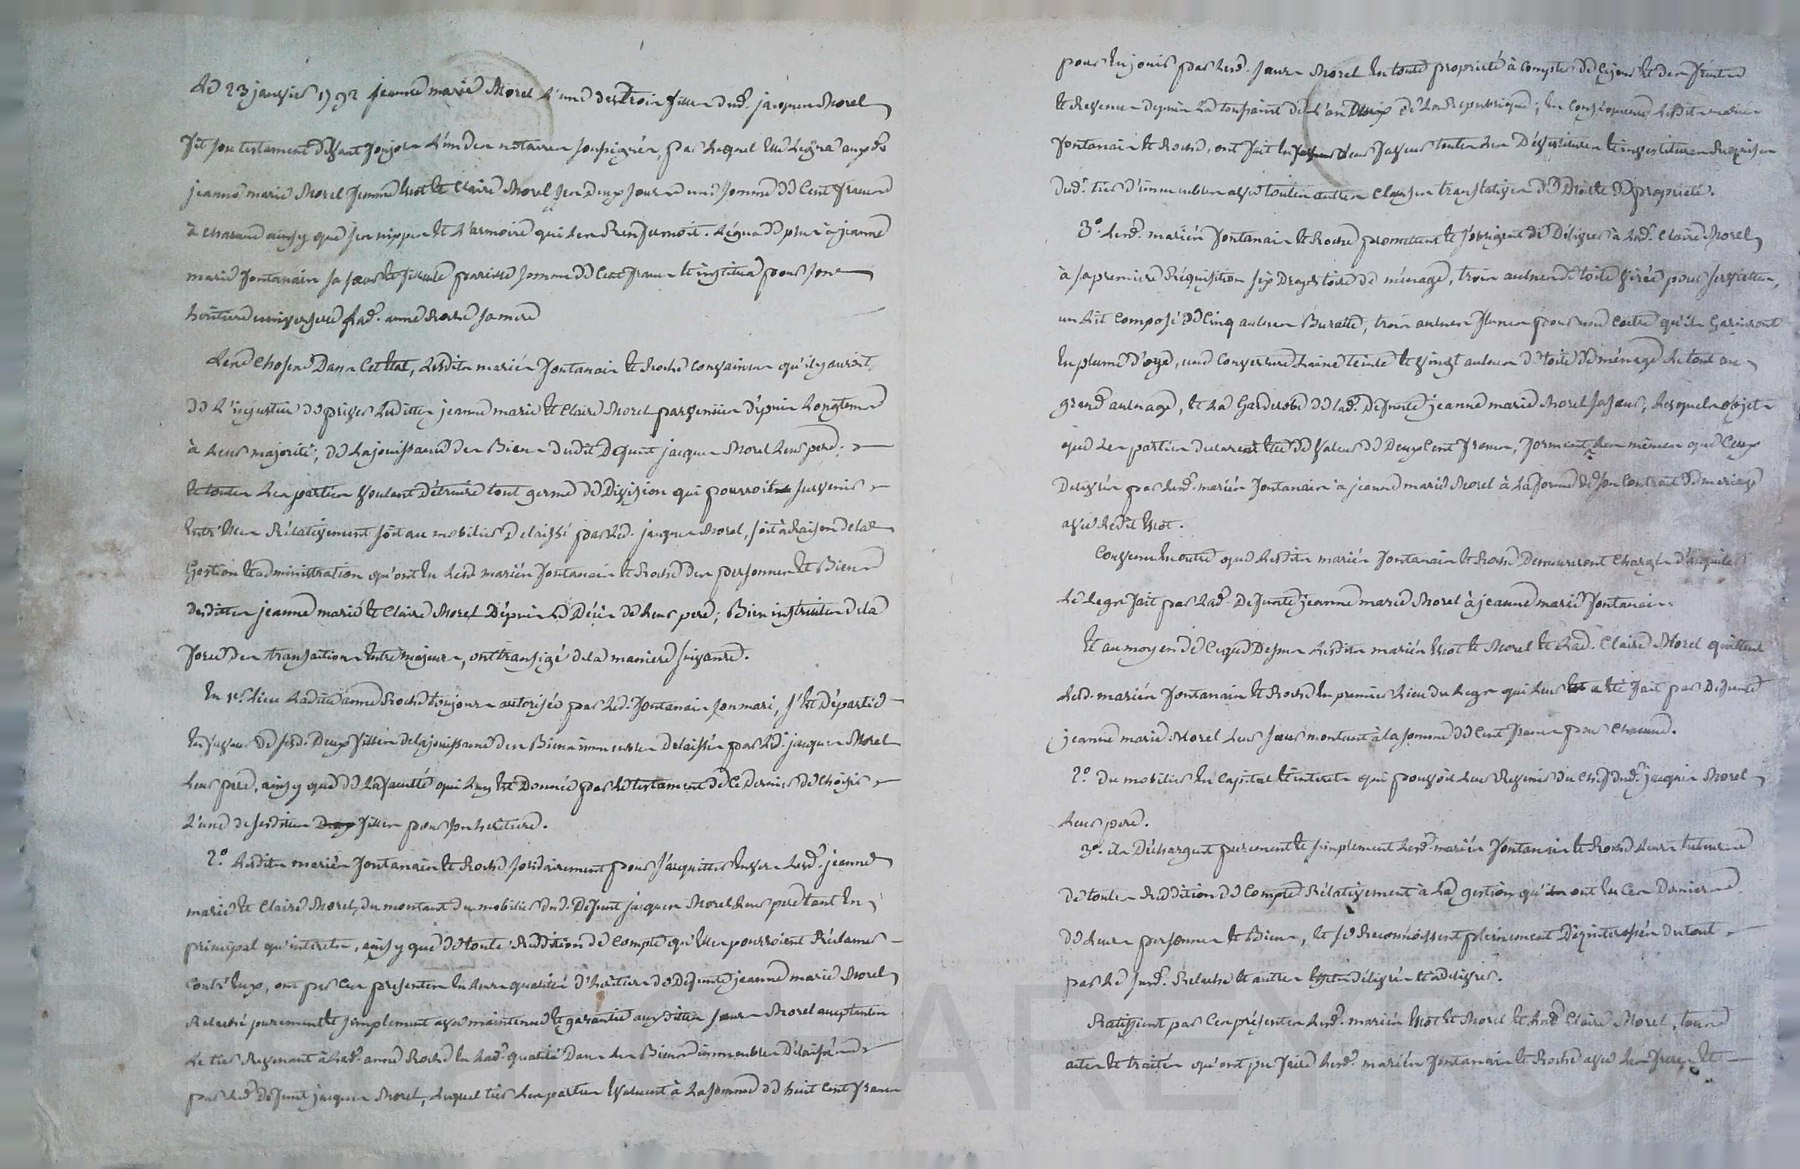 Le 23 janvier 1792 jeanne marie Morel l'une des trois filles dud. jacques Morel
fit son testament devant Joujon l'un des notaires soussignés, par lequel elle légua auxd.
jeanne marie Morel femme Viot et Claire Morel ses deux sœurs une somme de Cent francs
à chacune ainsy que ses nippes et l'armoire qui les Renfermoit. Légua de plus à jeanne
marie fontanais sa sœur et filleule pareille somme de Cent francs et institua pour son
héritiere universelle lad. anne Roche sa mere
Les Choses Dans Cet état, lesdits mariés fontanais et Roche convaincus qu'il y auroit
de l'injustice de priver lesdittes jeanne marie et Claire Morel parvenües depuis longtems
à leur majorité, de la jouissance des Biens dudit Defunt jacques Morel leur pere,
et toutes les parties voulant détruire tout germe de Division qui pourroit survenir
entr'elles Rélativement soit au mobilier Delaissé par led. jacques Morel, soit à Raison de la
Gestion et administration qu'ont eu lesd. mariés fontanais et Roche des personnes et Biens
desdittes jeanne marie et Claire Morel Depuis le Décès de leur pere; Bien instruites de la
force des transactions entre majeurs, ont transigé de la maniere suivante.
En 1er lieu laditte anne Roche toujours autorisée par led. fontanais son mari, s'est départie
en faveur de sesd. Deux filles de la jouissance des Biens immeubles delaissés par led. jacques Morel
leur pere, ainsy que de la faculté qui luy est Donnée par le testament de Ce dernier de choisir
l'une desdittes Deux filles pour son héritiere.
2º lesdits mariés fontanais et Roche solidairement pour s'acquitter envers lesd. jeanne
marie et Claire Morel, du montant du mobilier dud. Defunt jacques Morel leur pere tant en
principal qu'interets, ainsy que de toute Reddition de Compte qu'elles pourroient Réclamer
contr'eux, ont par Ces presentes en leur qualité d'héritiere de Defunte jeanne marie Morel
Relaché purement et simplement avec maintenue et garantie auxdittes sœurs Morel acceptantes
le tiers Revenant à lad. anne Roche en lad. qualité Dans les Biens immeubles Délaissés
par led. Defunt jacques Morel, lequel tiers les parties évaluent à la somme de huit Cent francs
pour en jouir par lesd. sœurs Morel en toute propriété à compter de Ce jour et des fruits
et Revenus depuis la toussaint de l'an Deux de la République; en conséquence lesdits mariés
fontanais et Roche, ont fait en leur faveur toutes les Dévestitures et investitures Requises
dud. tiers d'immeubles avec toutes autres clauses translatives de Droit et de propriété.
3º lesd. mariés fontanais et Roche promettent et s'obligent de Délivrer à lad. Claire Morel
à sa premiere Réquisition six Draps toile de ménage, trois aulnes de toile Cirée pour serviettes,
un Lit composé de Cinq aulnes Buratte, trois aulnes pour une Coitre qu'ils Garniront
en plume d'oye, une Couverture Laine teinte et vingt aulnes de toile de ménage le tout au
grand aulnage, et la Garderobe de lad. Defunte jeanne marie Morel sa sœur, lesquels objets
que les parties declarent être de valeur de Deux Cent francs, forment les mêmes que Ceux
Delivrés par lesd. mariés fontanais à jeanne marie Morel à la forme de son Contrat de mariage
avec ledit Viot.
Convenu en outre que lesdits mariés fontanais et Roche Demeureront Chargés d'acquitter
le legs fait par lad. Defunte jeanne marie Morel à jeanne marie fontanais.
Et au moyen de Ce que Dessus lesdits mariés Viot et Morel et lad. Claire Morel quittent
lesd. mariés fontanais et Roche en premier lieu du legs qui leur a été fait par Defunte
jeanne marie Morel leur sœur montant à la somme de Cent francs pour Chacune.
2º du mobilier en Capital et interets qui pouvoit leur Revenir du Chef dud. jacques Morel
leur pere.
3º ils Déchargent purement et simplement lesd. mariés fontanais et Roche
de toutes Reddition de Compte Rélativement à la gestion qu'ont eu Ces Derniers
de leurs personnes et Biens, et se Reconnoissent pleinement Désinteressés du tout
par le susd. Relaché et autres objets délivrés et à délivrer.
Ratiffient par Ces présentes lesd. mariés Viot et Morel et lad. Claire Morel, tous
actes et traités qu'ont pu faire lesd. mariés fontanais et Roche avec les freres et
CHAREYRON